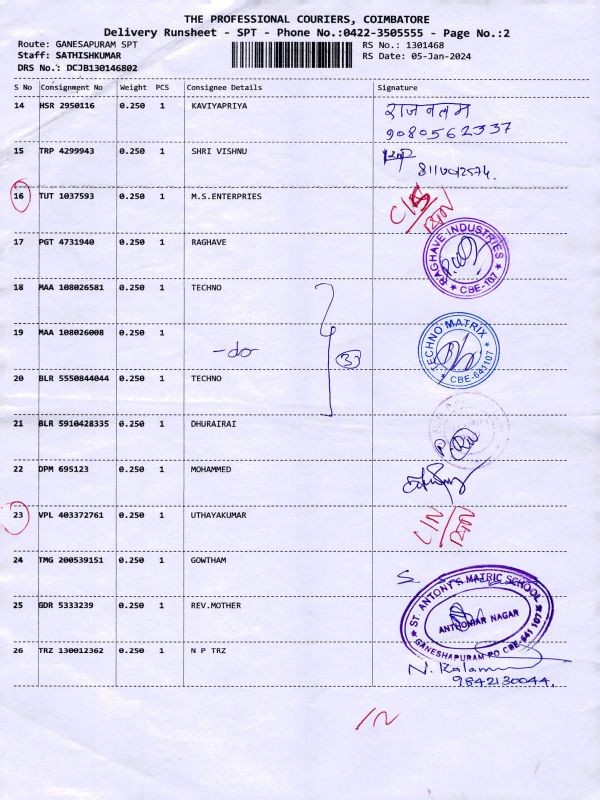 THE PROFESSIONAL COURIERS, COIMBATORE
Delivery Runsheet - SPT - Phone No.:0422-3505555 - Page No.:2
Route: GANESAPURAM SPT RS No.: 1301468
Staff: SATHISHKUMAR RS Date: 05-Jan-2024
DRS No.: DCJB130146802
S No Consignment No Weight PCS Consignee Details Signature
14 HSR 2950116 0.250 1 KAVIYAPRIYA
9080562337
15 TRP 4299943 0.250 1 SHRI VISHNU
16 TUT 1037593 0.250 1 M.S.ENTERPRIES
17 PGT 4731940 0.250 1 RAGHAVE
RAGHAVE INDUSTRIES
★ CBE-107 ★
18 MAA 108026581 0.250 1 TECHNO
19 MAA 108026008 0.250 1
-do- 3
TECHNO MATRIX
★ CBE-641107 ★
20 BLR 5550844044 0.250 1 TECHNO
21 BLR 5910428335 0.250 1 DHURAIRAI
22 DPM 695123 0.250 1 MOHAMMED
23 VPL 403372761 0.250 1 UTHAYAKUMAR
24 TMG 200539151 0.250 1 GOWTHAM
25 GDR 5333239 0.250 1 REV.MOTHER
ST ANTONY'S MATRIC SCHOOL
ANTHONIAR NAGAR
★ GANESHAPURAM PO CBE-641 107 ★
26 TRZ 130012362 0.250 1 N P TRZ
9842130044.